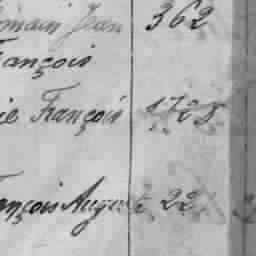 omain Jean 362
rançois
ie François 1728
ançois August 22